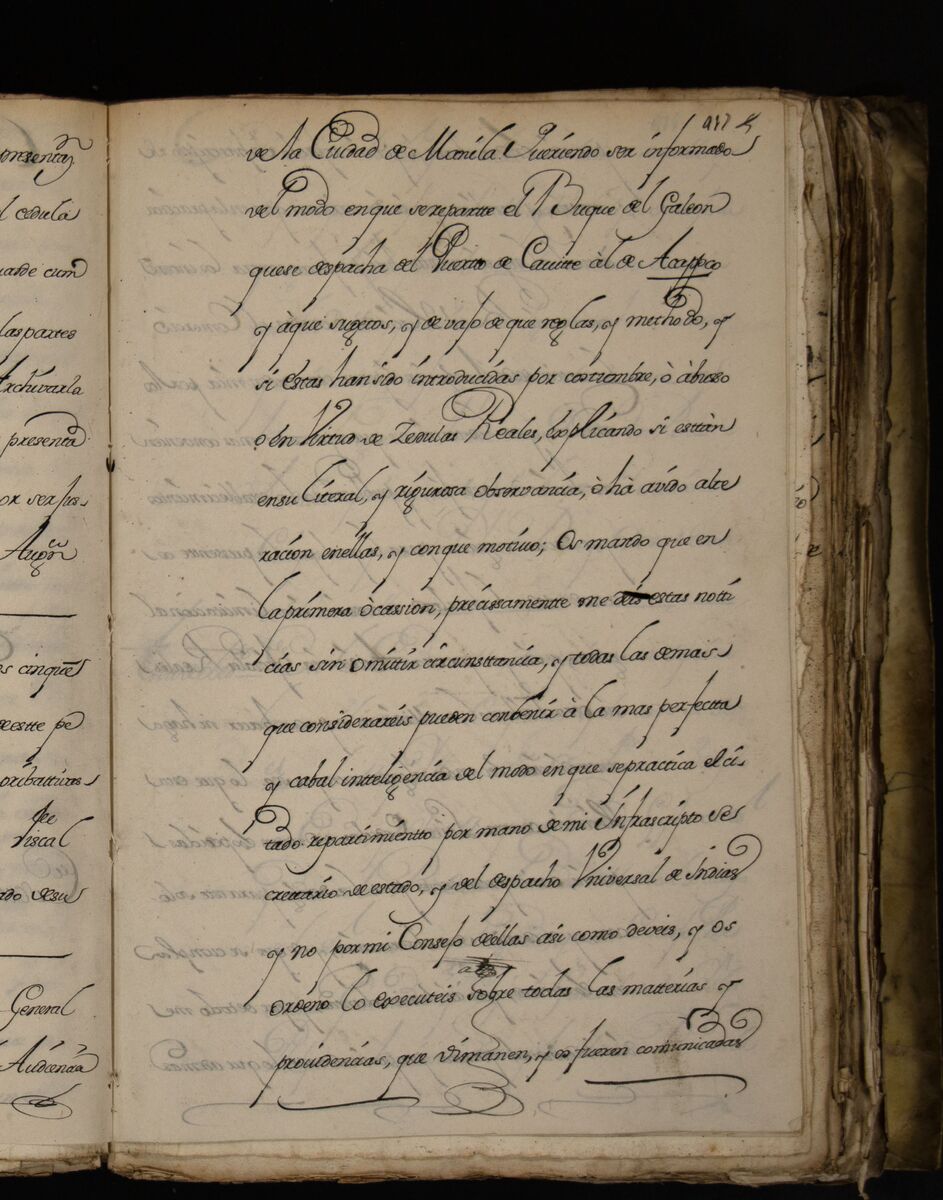 presentaⁿ
l cedula
uarde cum
las partes
Archivarla
presenta
or ser jus-
Augⁿ
os cinqᵗᵃ
deestte pe
oributtivas
fee
Fiscal
ado desu
General
Audiencia
917
de la Ciudad de Manila. Queriendo ser informado
del modo enque sereparte el Buque del Galeon
quese despacha del Puerto de Cavitte àl de Acappco
y àque sugetos, y devajo de que reglas, y methodo, y
si éstas hansido introducidas por costumbre, ò àbusso
o en Virtud de Zedulas Reales, explicando si esttàn
ensu literal, y rigurosa observancia, ò hà avido alte
racion enellas, y conque motivo; Os mando que en
la primera òcassion, precissamentte me deis estas noti
cias sin omitir circunsttancia, y todas las demas
que considerareis pueden conbenir à la mas perfectta
y cabal intteligencia del modo en que sepractica el ci
tado repartimientto por mano de mi Infrascripto Se
crettario de estado, y del despacho Universal de Indias
y no por mi Consejo deellas asi como deveis, y os
ordeno lo executeis sobre todas las matterias y
providencias, que dimanen, y os fueren comunicadas